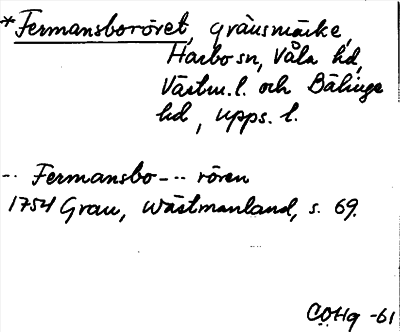 *Fermansboröret, gränsmärke,
Harbo sn, Våla hd,
Västm. l. och Bälinge
hd, Upps. l.
-- Fermansbo --- rören
1754 Grau, Wästmanland, s. 69.
COHq -61